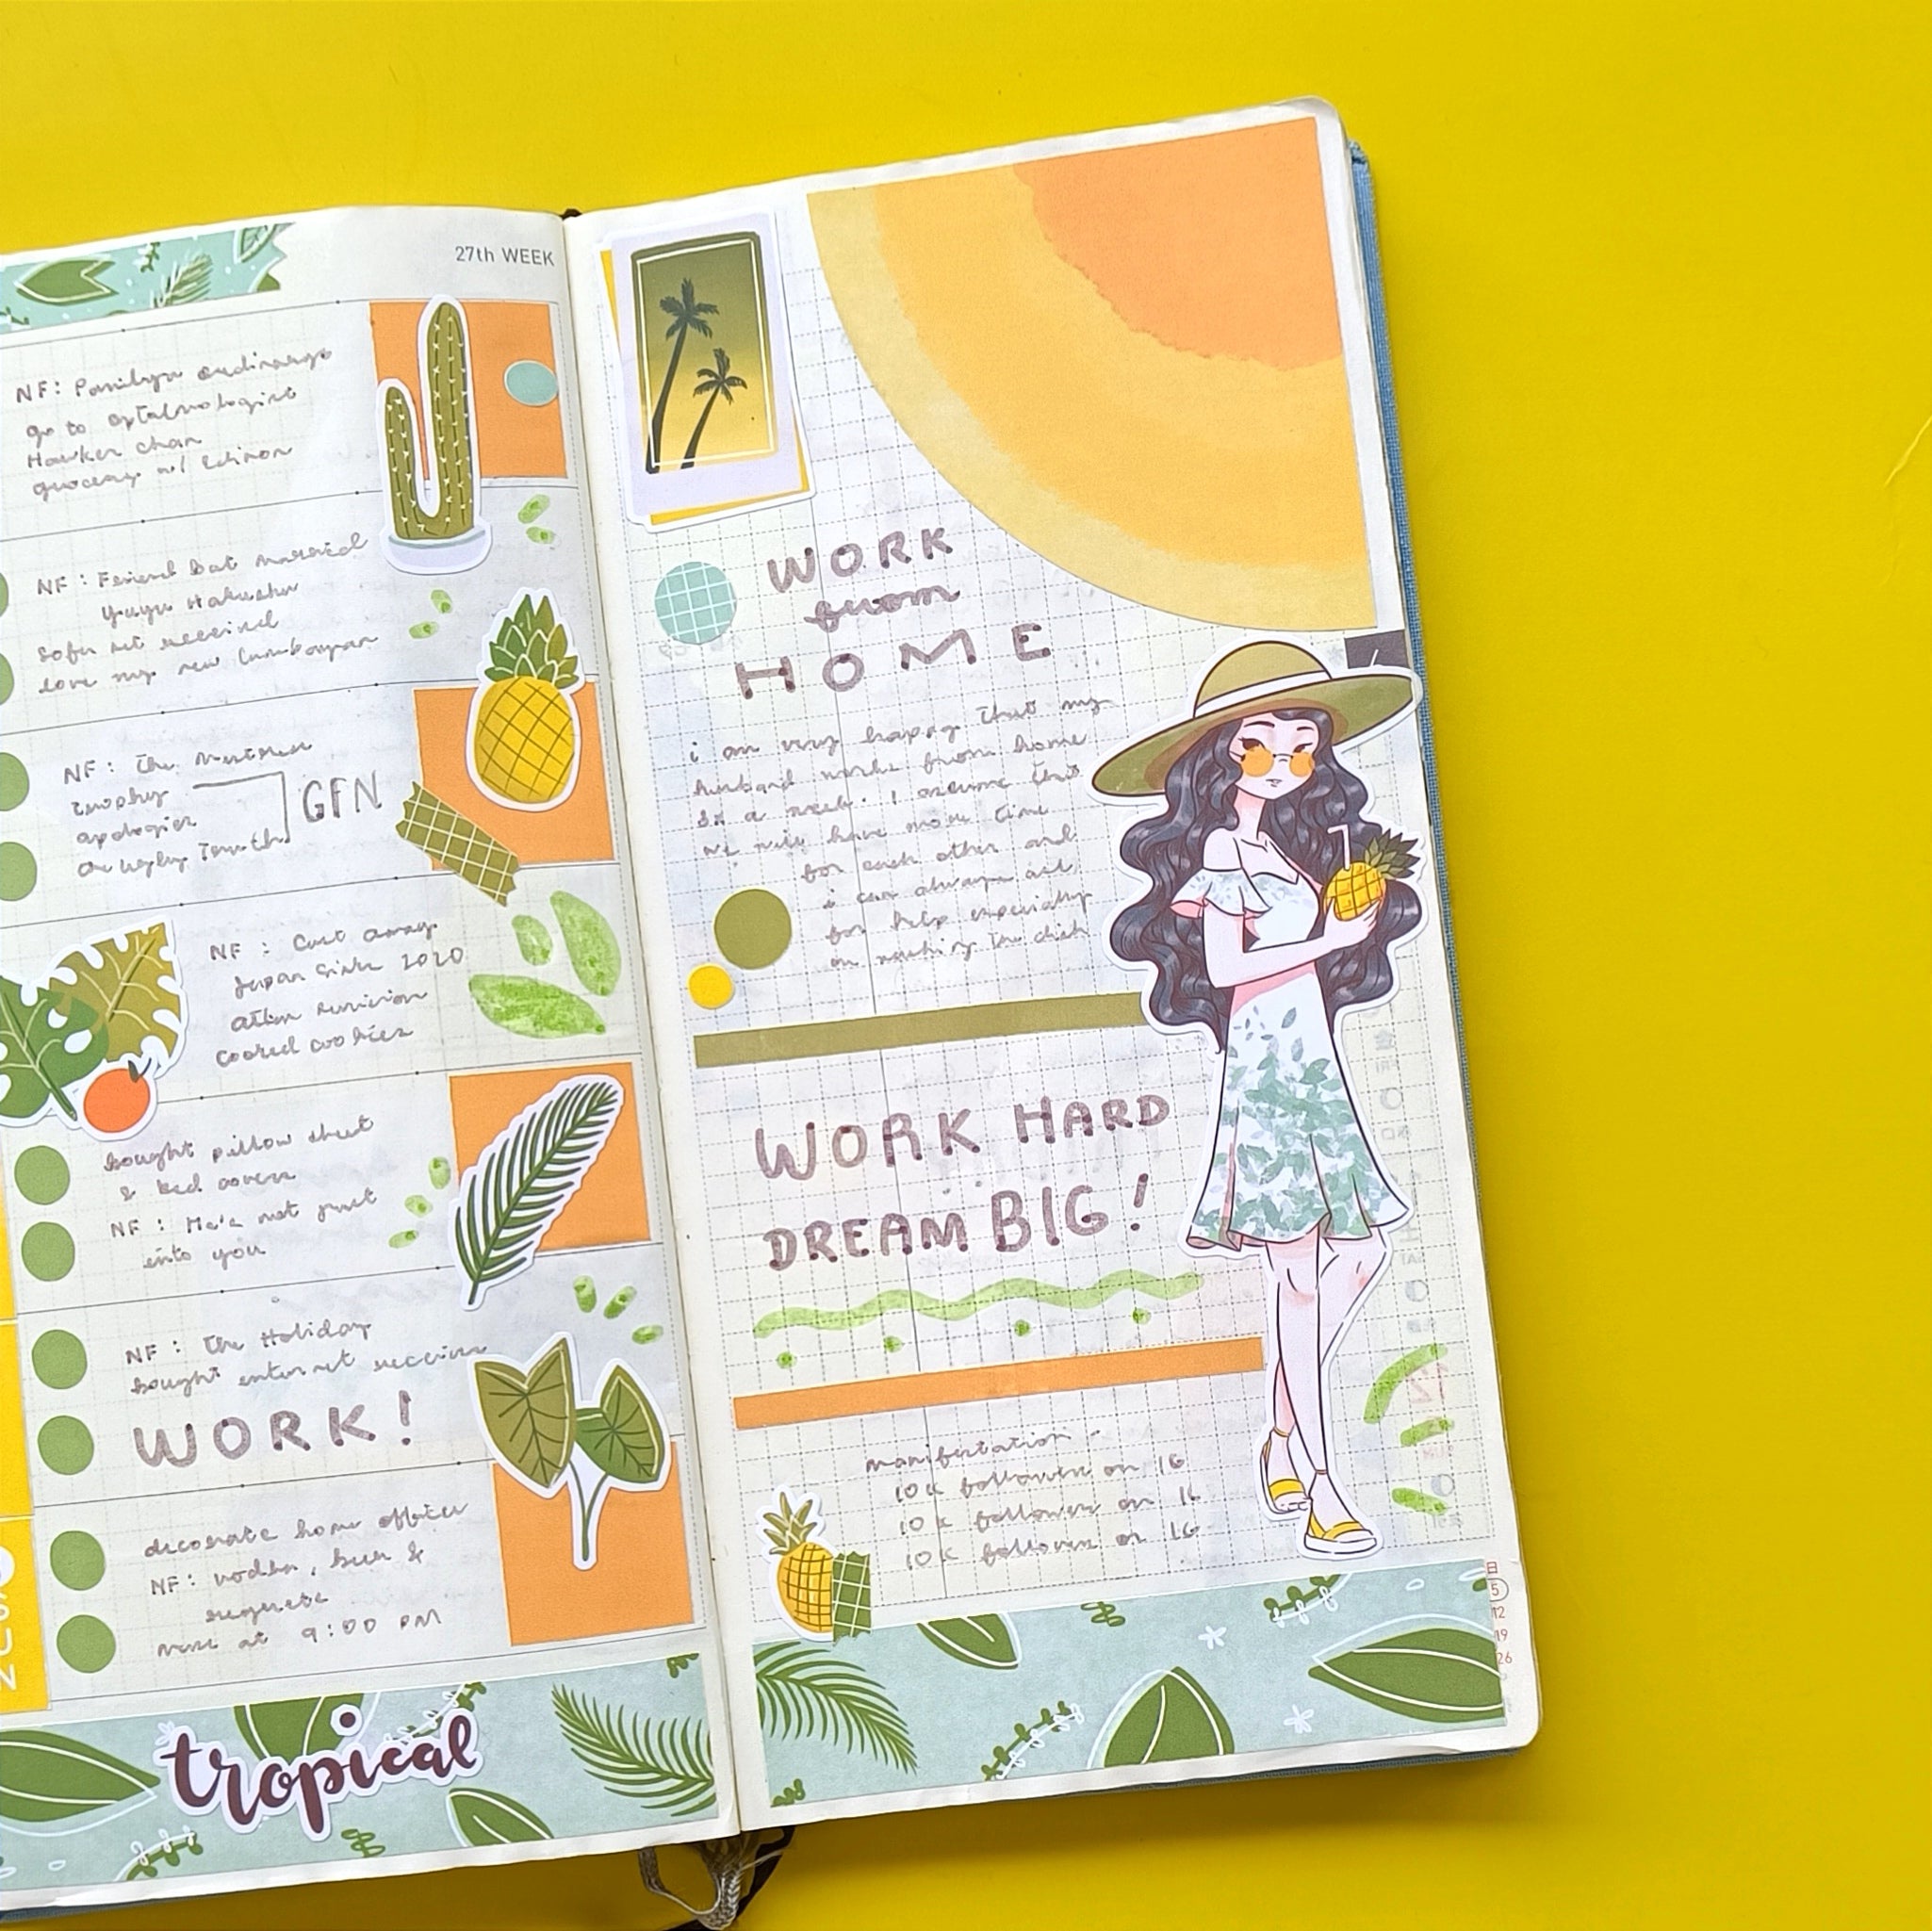 27th WEEK
NF:
go to optalmologist
Hawker chan
grocery w/ Edison
NF:
Yuyu Hakusho
sofa set received
love my new
NF: The
trophy
apologies
an ugly Truth
GFN
NF: Cast away
Japan Sinks 2020
cooked cookies
bought pillow sheet
& bed covers
NF: He's not just
into you
NF: The Holiday
bought internet
WORK!
decorate home office
NF: vodka, beer &
regrets
at 9:00 PM
SUN
tropical
WORK
from
HOME
i am very happy that my
husband works from home
5x a week. I assume that
we will have more time
for each other and
i can always ask
for help especially
on washing the dish
WORK HARD
DREAM BIG!
manifestation -
10k followers on IG
10k followers on IG
10k followers on IG
日
5
12
19
26